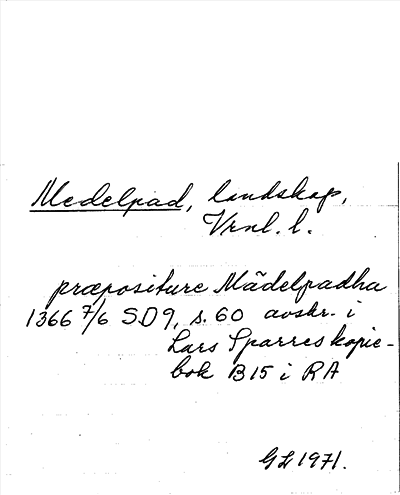 Medelpad, landskap,
Vrnl. l.
præpositure Mädelpadha
1366 7/6 SD9, s. 60 avskr. i
Lars Sparres kopie-
bok B15 i RA
GL 1971.